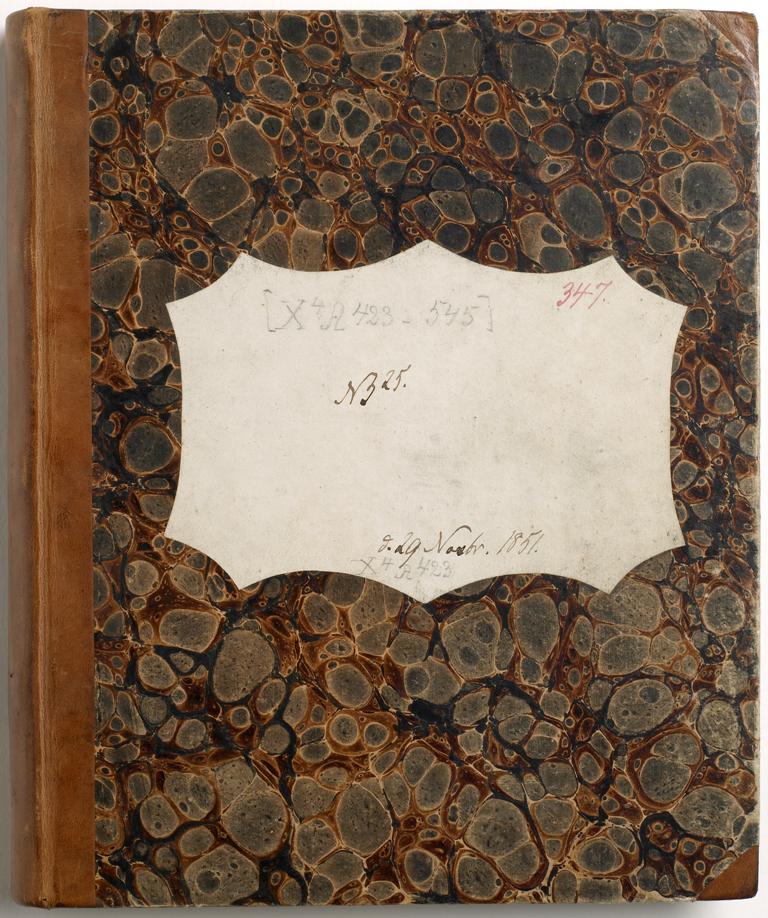 [X⁴A 423 - 545]
347.
NB 25.
d. 29 Novbr. 1851.
X⁴A 423